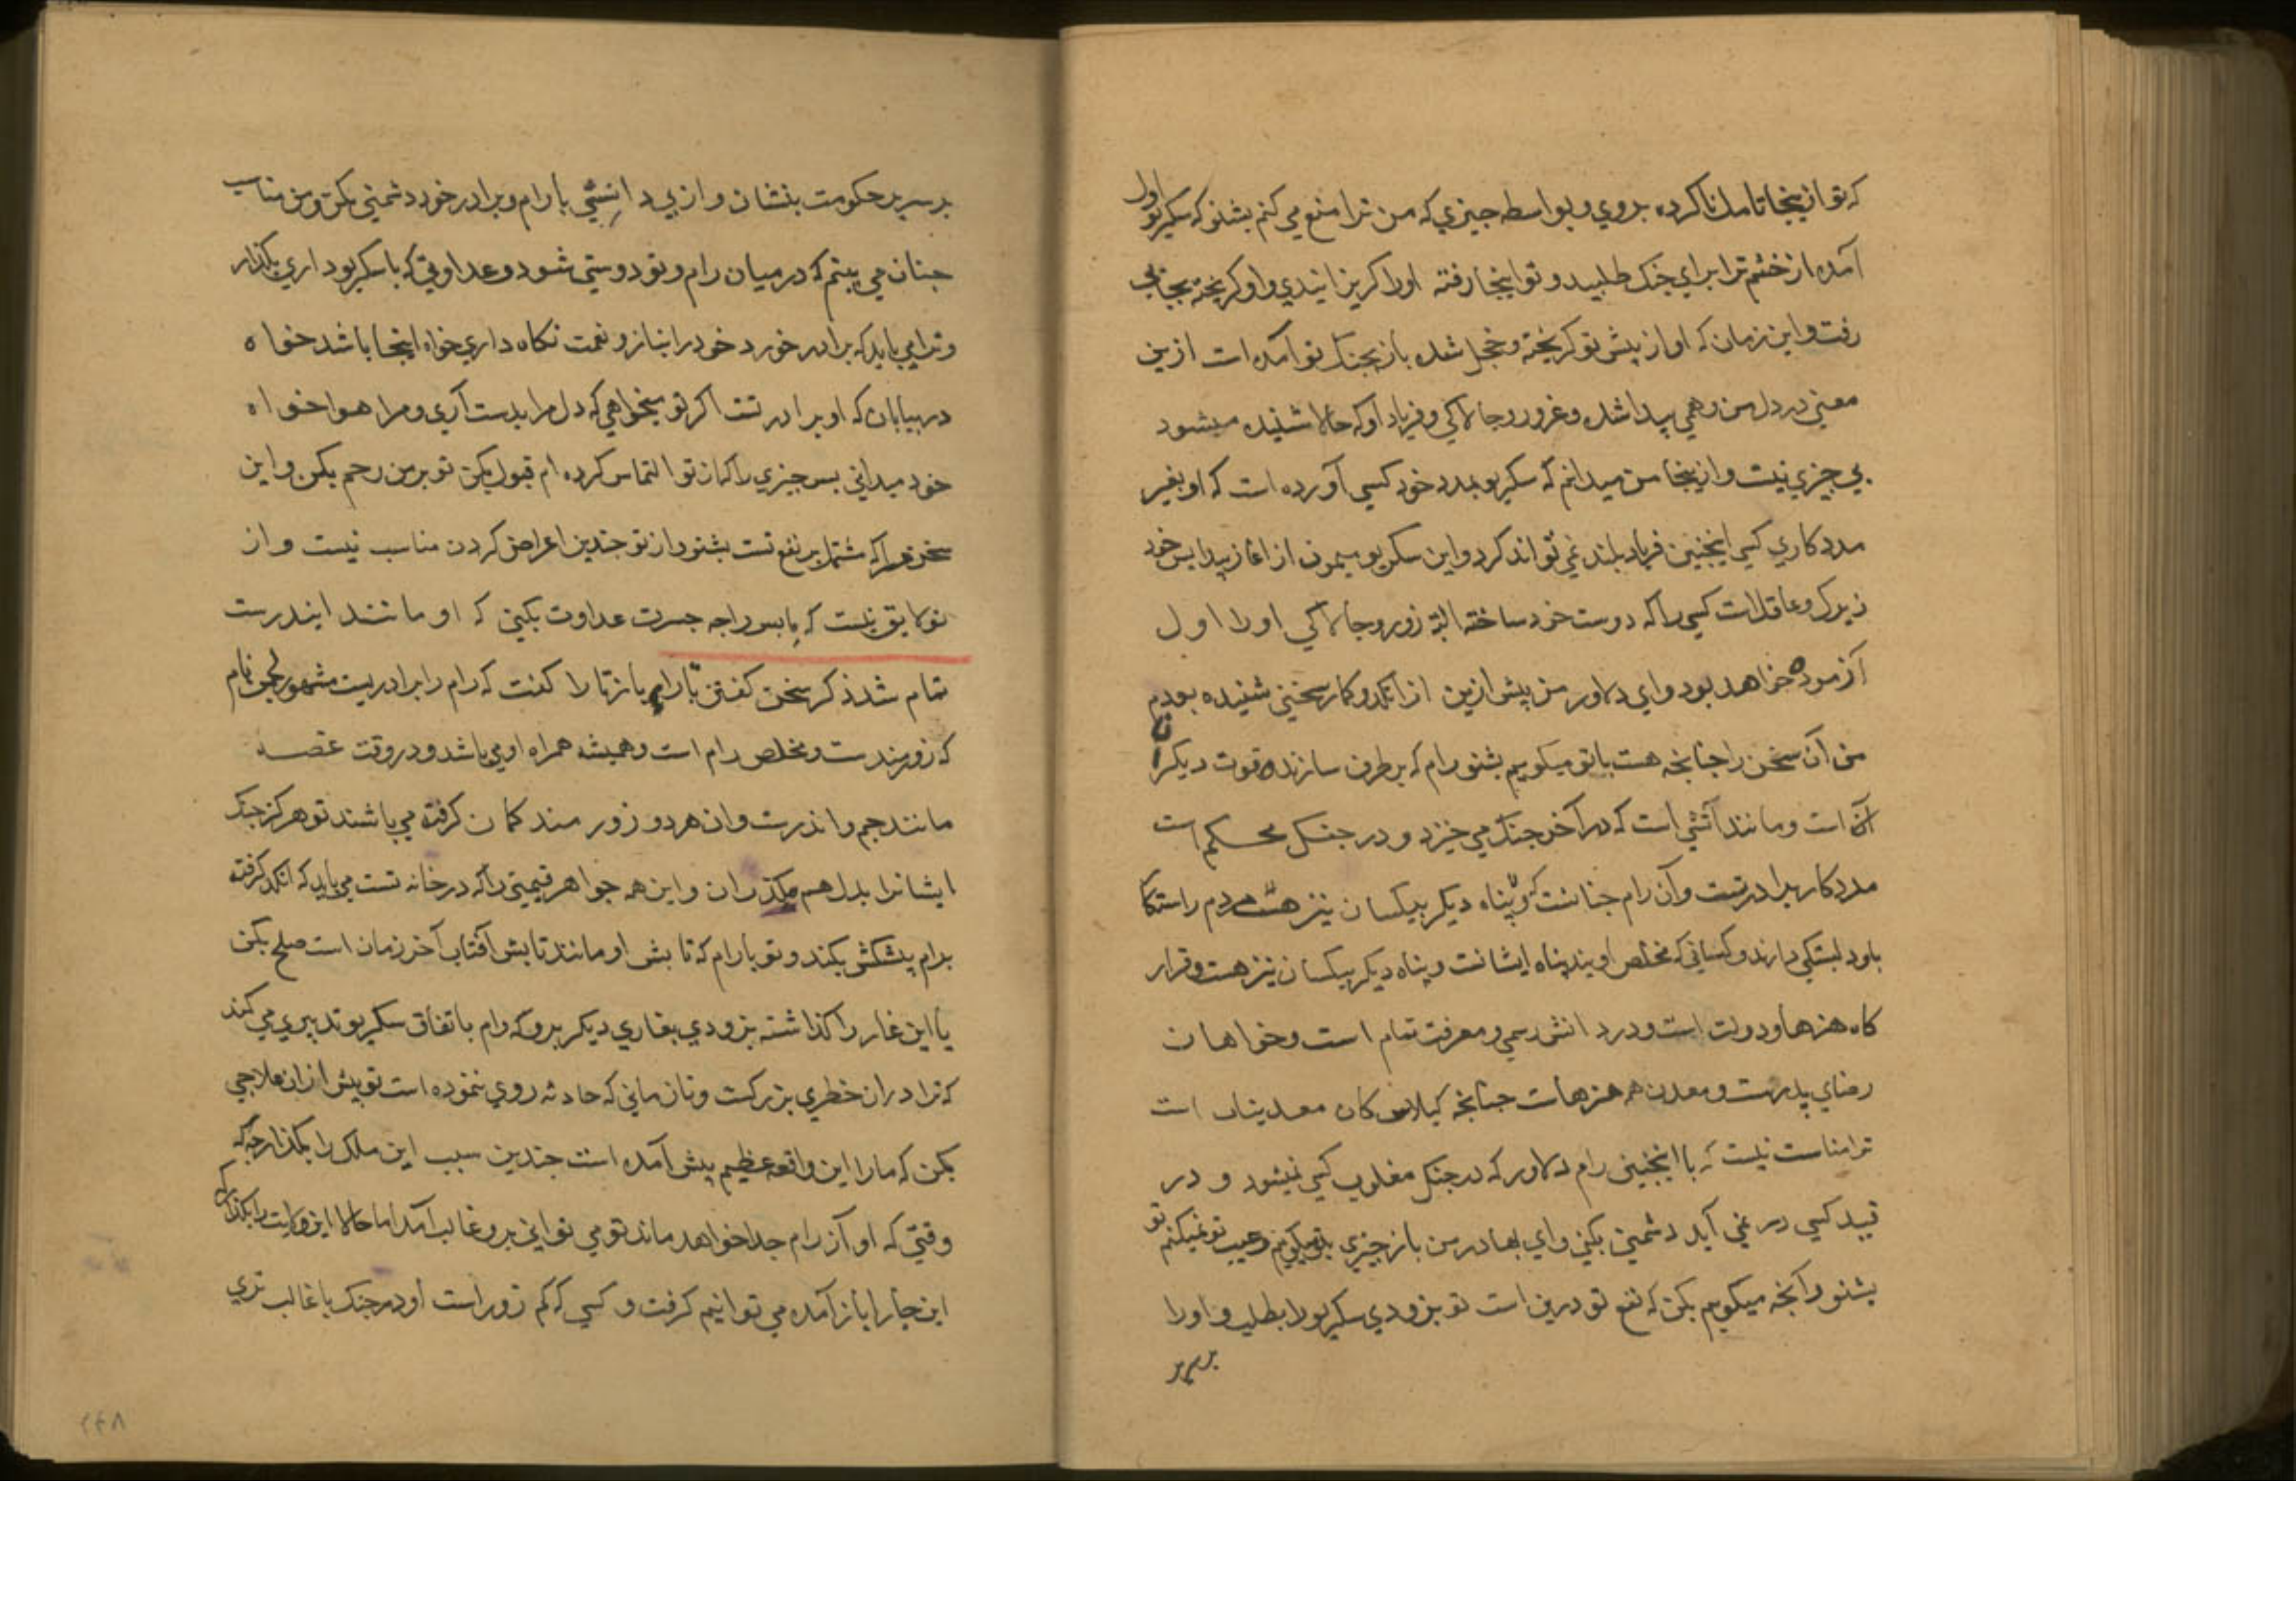 که تو ازینجا تامل ناکرده بروی و بواسطه جیزی که من ترا منع می کنم بشنو که سکریو اول
آمده از خشم ترا برای جنک طلبید و تو اینجا رفته اورا کریزانیدی و او کریخته بجای
رفت و این زمان که او از پیش تو کریخته و خجل شده باز بجنک تو آمده است ازین
معنی در دل من وهمی پیدا شده و غرور و جالاکی و فریاد او که حالا شنیده میشود
بی جیزی نیست و ازینجا من میدانم که سکریو بمدد خود کسی آورده است که او بغیر
مددکاری کسی اینجنین فریاد بلند نمی تواند کرد و این سکریو میمون از اغاز پیدایس خود
زیرک و عاقل است کسی را که دوست خود ساخته البته زور و جالاکی اورا اول
آزموده خواهد بود و ای دلاور من پیش ازین از انکد و کار سخنی شنیده بودم
من آن سخن را جنانجه هست با تو میکویم بشنو رام که برطرف سازنده قوت دیکران
است و مانند آتشی است که در آخر جنک می خیزد و در جنک محکم است
مددکار برادرتست و آن رام جنانست که پناه دیکر بیکسان نیز هست مردم راستکا
باو دلبستکی دارند و کسانی که مخلص اویند پناه ایشانست و پناه دیکر بیکسان نیز هست و قرار
کاه هنرها و دولت است و در دانش رسمی و معرفت تمام است و خواهان
رضای پدرست و معدن همه هنرهاست جنانجه کیلاس کان معدنیات است
ترا مناسب نیست که با اینجنین رام دلاور که در جنک مغلوب کسی نمیشود و در
قید کسی در نمی آید دشمنی بکنی و ای بهادر من باز جیزی بتو میکویم و عیب تو نمیکنم تو
بشنو و آنجه میکویم بکن که نفع تو درین است تو بزودی سکریو را بطلب و اورا
بر سریر
بر سریر حکومت بنشان و از بی دانشی با رام و برادر خورد دشمنی مکن و من مناسب
جنان می بینم که در میان رام و تو دوستی شود و عداوتی که با سکریو داری بکذار
و ترا می باید که برادر خورد خود را بناز و نعمت نکاه داری خواه اینجا باشد خواه
در بیابان که او برادر تست اکر تو میخواهی که دل مرا بدست آری و مرا هواخواه
خود میدانی بس جیزی را که از تو التماس کرده ام قبول بکن تو بر من رحم بکن و این
سخن مرا که مشتمل بر نفع تست بشنو و از تو جندین اعراض کردن مناسب نیست و از
تو لایق نیست که با بسر راجه جسرت عداوت بکنی که او مانند ایندرست
تمام شد ذکر سخن کفتن تارا باز تارا کفت که رام را برادریست مشهور لجمن نام
که زورمندست و مخلص رام است و همیشه همراه او می باشد و در وقت غصه
مانند جم و اندرست و ان هر دو زورمند کمان کرفته می باشند تو هرکز جنک
ایشانرا بدل هم مکذران و این همه جواهر قیمتی را که در خانه تست می باید که انکد کرفته
برام پیشکش بکند و تو با رام که تابش او مانند تابش آفتاب آخر زمان است صلح بکن
یا این غار را کذاشته بزودی بغاری دیکر برو که رام باتفاق سکریو تدبیری می کند
که ترا دران خطری بزرکست و تا زمانی که حادثه روی ننموده است تو پیش ازان علاجی
بکن که مارا این واقعه عظیم پیش آمده است جندین سبب این ملک را بکذار جه که
وقتی که او از رام جدا خواهد ماند تو می توانی برو غالب آمد اما حالا این ولایت را بکذار که
این جا را باز آمده می توانیم کرفت و کسی که کم زور است او در جنک با غالب تری
۲۴۸